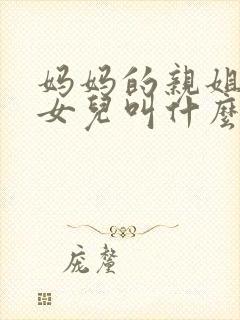 妈妈的親姐
女兒叫什麼
庞釐